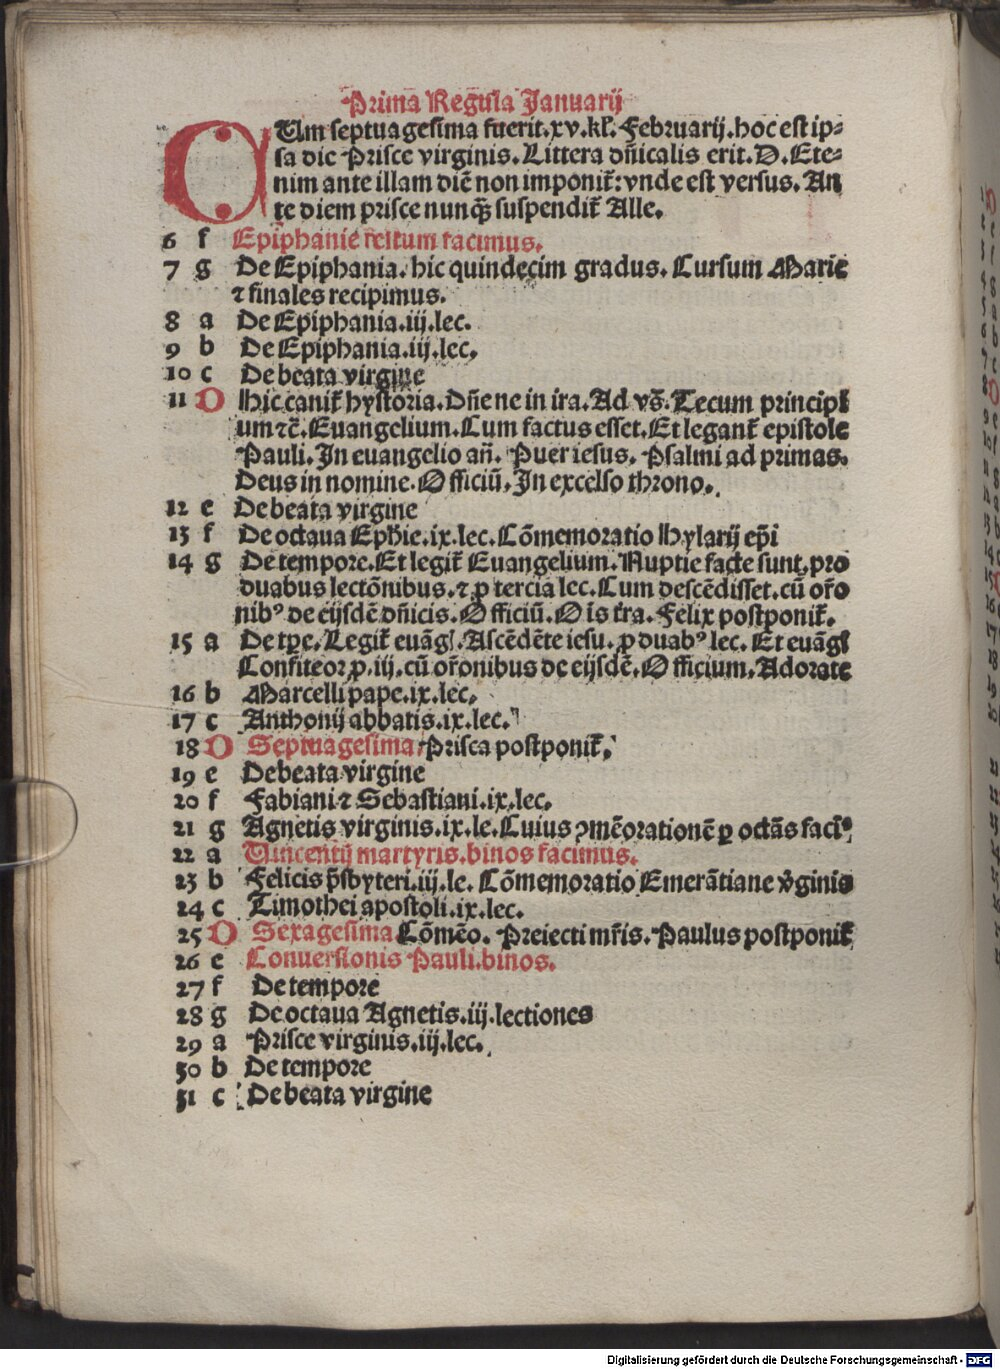 Prima Regula Januarij
CUm septuagesima fuerit.xv.kl̄.Februarij.hoc est ip-
sa die Prisce virginis.Littera dn̄icalis erit.D.Ete-
nim ante illam diē non imponit᷑:vnde est versus.An
te diem prisce nunqꝫ suspendit᷑ Alle.
6 f Epiphanie festum facimus.
7 g De Epiphania.hic quindecim gradus.Cursum Marie
⁊ finales recipimus.
8 a De Epiphania.iij.lec.
9 b De Epiphania.iij.lec.
10 c De beata virgine
11 D Hic canit᷑ hystoria.Dn̄e ne in ira.Ad vs̄.Tecum principi
um ⁊c̄.Euangelium.Cum factus esset.Et legant᷑ epistole
Pauli.In euangelio an̄.Puer iesus.Psalmi ad primas.
Deus in nomine.Officiū.In excelso throno.
12 e De beata virgine
13 f De octaua Eph̄ie.ix.lec.Cōmemoratio Hylarij ep̄i
14 g De tempore.Et legit᷑ Euangelium.Nuptie facte sunt.pro
duabus lectōnibus.⁊ ꝑ tercia lec.Cum descēdisset.cū or̄o
nibꝰ de eijsdē dn̄icis.Officiū.Oīs t̄ra.Felix postponit᷑.
15 a De tp̄e.Legit᷑ euāgl̄.Ascēdēte iesu.ꝓ duabꝰ lec. Et euāgl̄
Confiteor ꝓ.iij.cū or̄onibus de eijsdē.Officium.Adorate
16 b Marcelli pape.ix.lec.
17 c Anthonij abbatis.ix.lec.
18 D Septuagesima Prisca postponit᷑.
19 e De beata virgine
20 f Fabiani ⁊ Sebastiani.ix.lec.
21 g Agnetis virginis.ix.le.Cuius ꝯmēorationē ꝑ octās faciꝰ
22 a Vincentij martyris.binos facimus.
23 b Felicis p̄sbyteri.iij.le. Cōmemoratio Emerātiane v̓ginis
24 c Timothei apostoli.ix.lec.
25 D Sexagesima Cōmēo. Preiecti mr̄is.Paulus postponit᷑
26 e Conuersionis Pauli.binos.
27 f De tempore
28 g De octaua Agnetis.iij.lectiones
29 a Prisce virginis.iij.lec.
30 b De tempore
31 c De beata virgine
Digitalisierung gefördert durch die Deutsche Forschungsgemeinschaft - DFG